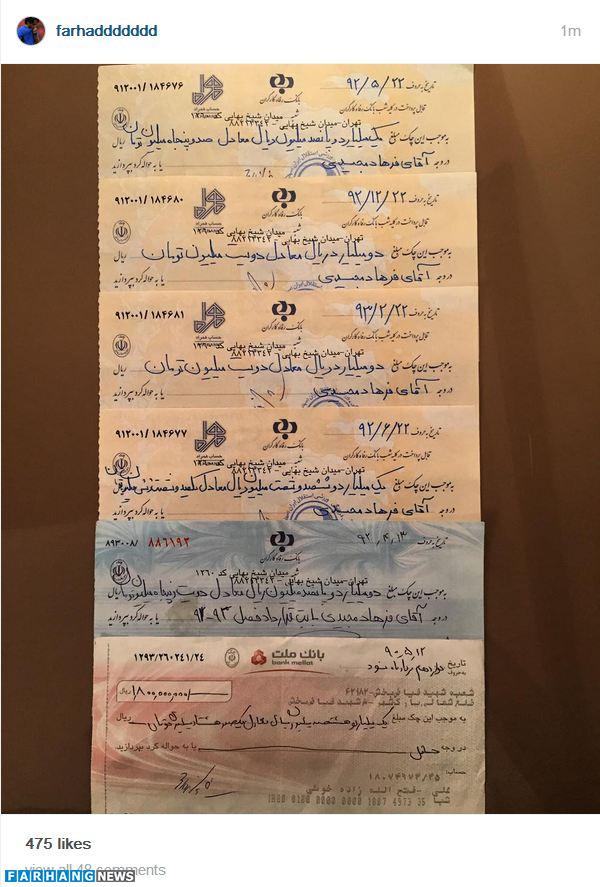 farhaddddddd
1m
۹۱۲۰۰۱/۱۸۴۶۷۶
تاریخ به حروف ۹۲/۵/۲۲
بانک رفاه کارگران
قابل پرداخت در کلیه شعب بانک رفاه کارگران
تهران-میدان شیخ بهایی
به موجب این چک مبلغ یک میلیارد و پانصد میلیون ریال معادل صد و پنجاه میلیون تومان
در وجه آقای فرهاد مجیدی یا به حواله کرد بپردازید
۹۱۲۰۰۱/۱۸۴۶۸۰
تاریخ به حروف ۹۲/۱۲/۲۲
بانک رفاه کارگران
قابل پرداخت در کلیه شعب بانک رفاه کارگران
تهران-میدان شیخ بهایی
۸۸۲۲۳۴۴۳
به موجب این چک مبلغ دو میلیارد ریال معادل دویست میلیون تومان ریال
در وجه آقای فرهاد مجیدی یا به حواله کرد بپردازید
۹۱۲۰۰۱/۱۸۴۶۸۱
تاریخ به حروف ۹۳/۲/۲۲
بانک رفاه کارگران
قابل پرداخت در کلیه شعب بانک رفاه کارگران
تهران-میدان شیخ بهایی
به موجب این چک مبلغ دو میلیارد ریال معادل دویست میلیون تومان ریال
در وجه آقای فرهاد مجیدی یا به حواله کرد بپردازید
۹۱۲۰۰۱/۱۸۴۶۷۷
تاریخ به حروف ۹۲/۶/۲۲
بانک رفاه کارگران
قابل پرداخت در کلیه شعب بانک رفاه کارگران
تهران-میدان شیخ بهایی
به موجب این چک مبلغ یک میلیارد و ششصد و شصت میلیون ریال معادل یکصد و شصت و شش میلیون
در وجه آقای فرهاد مجیدی یا به حواله کرد بپردازید
۸۹۳۰۰۸/ ۸۸۶۱۹۲
تاریخ به حروف ۹۲,۴,۱۳
بانک رفاه کارگران
میدان شیخ بهایی کد ۱۲۶۰
به موجب این چک مبلغ دو میلیارد و پانصد میلیون ریال معادل دویست و پنجاه میلیون تومان ریال
در وجه آقای فرهاد مجیدی بابت قرارداد فصل ۹۳-۹۲ یا به حواله کرد بپردازید
۱۲۹۳/۲۶۰۲۴۱/۲۴
بانک ملت
bank mellat
تاریخ ۹۰,۵,۱۲
به حروف دوازدهم مرداد ماه نود
۱,۸۰۰,۰۰۰,۰۰۰/ ریال
به موجب این چک مبلغ یک میلیارد و هشتصد میلیون ریال معادل یکصد و هشتاد میلیون تومان ریال
در وجه حامل یا به حواله کرد بپردازید
حساب: ۱۸۰۷۴۹۷۳/۳۵
475 likes
view all 48 comments
FARHANGNEWS